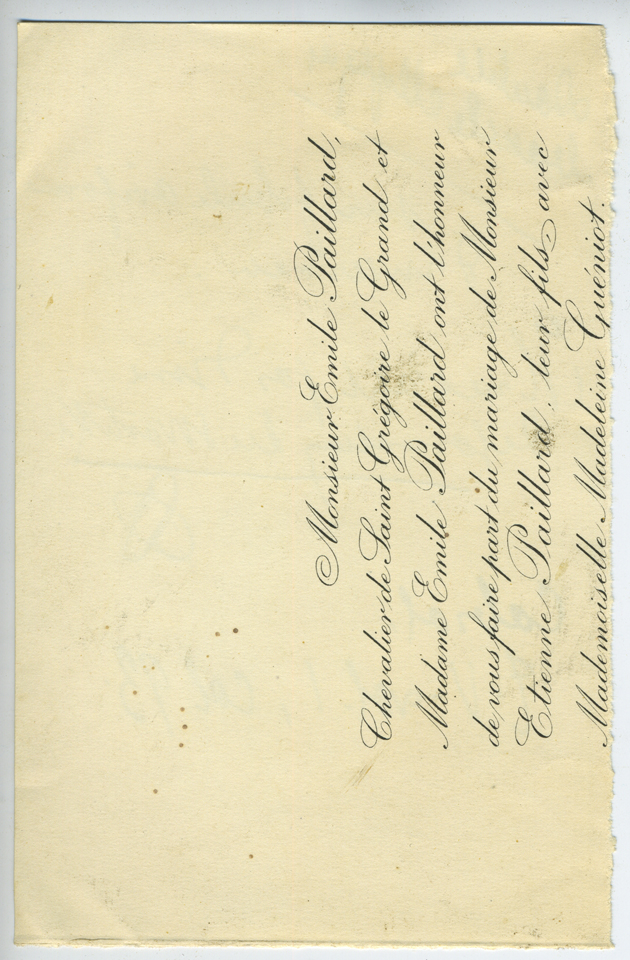 Monsieur Emile Paillard,
Chevalier de Saint Grégoire le Grand et
Madame Emile Paillard ont l'honneur
de vous faire part du mariage de Monsieur
Etienne Paillard, leur fils, avec
Mademoiselle Madeleine Guéniot